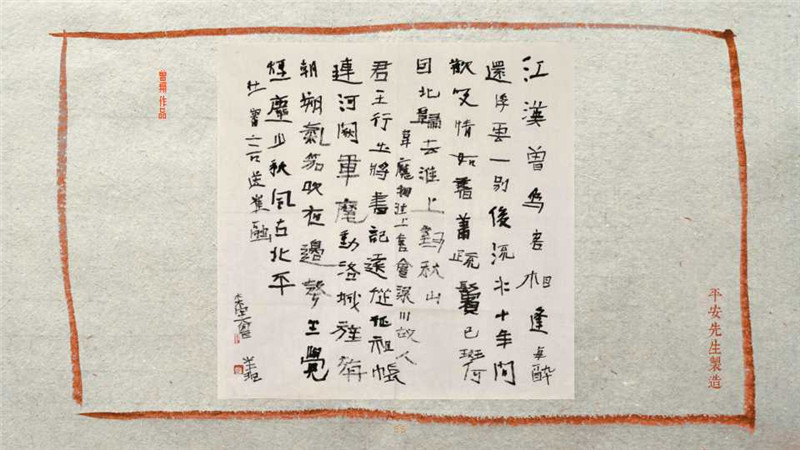 平安先生製造
江漢曾為客相逢每醉
還浮雲一別後流水十年間
歡笑情如舊蕭疏鬢已斑何
因北歸去淮上對秋山
韋應物淮上喜會梁川故人
君王行出將書記遠從征祖帳
連河闕軍麾動洛城旌旃
朝朔氣笳吹夜邊聲坐覺
煙塵少秋風古北平
杜審言送崔融
曾翔作品